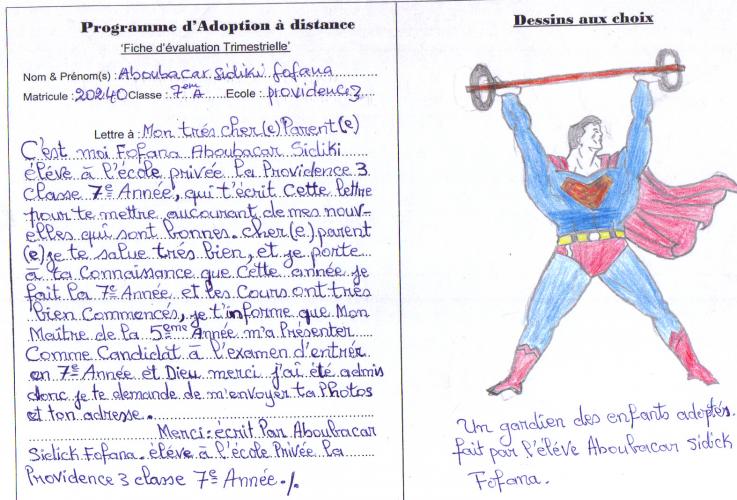 Programme d'Adoption à distance
'Fiche d'évaluation Trimestrielle'
Nom & Prénom(s) : Aboubacar Sidiki fofana
Matricule : 20240 Classe : 7em A Ecole : providence 3
Lettre à : Mon trés cher(e) Parent(e)
C'est moi Fofana Aboubacar Sidiki
éléve à l'école privée la Providence 3
Classe 7e Année, qui t'écrit Cette lettre
pour te mettre aucourant de mes nouv-
elles qui sont bonnes. cher(e) parent
(e) je te salue trés bien, et je porte
à ta Connaissance que Cette année je
fait la 7e Année et les Cours ont trés
bien Commencés, je t'informe que Mon
Maître de la 5eme Année m'a Présenter
Comme Candidat à l'examen d'entrér
en 7e Année et Dieu merci j'ai été admis
donc je te demande de m'envoyer ta Photos
et ton adresse.
Merci: écrit Par Aboubacar
Sidick Fofana. éléve à l'école Privée la
Providence 3 classe 7e Année ./.
Dessins aux choix
Un gardien des enfants adoptés.
fait par l'éléve Aboubacar Sidick
Fofana.